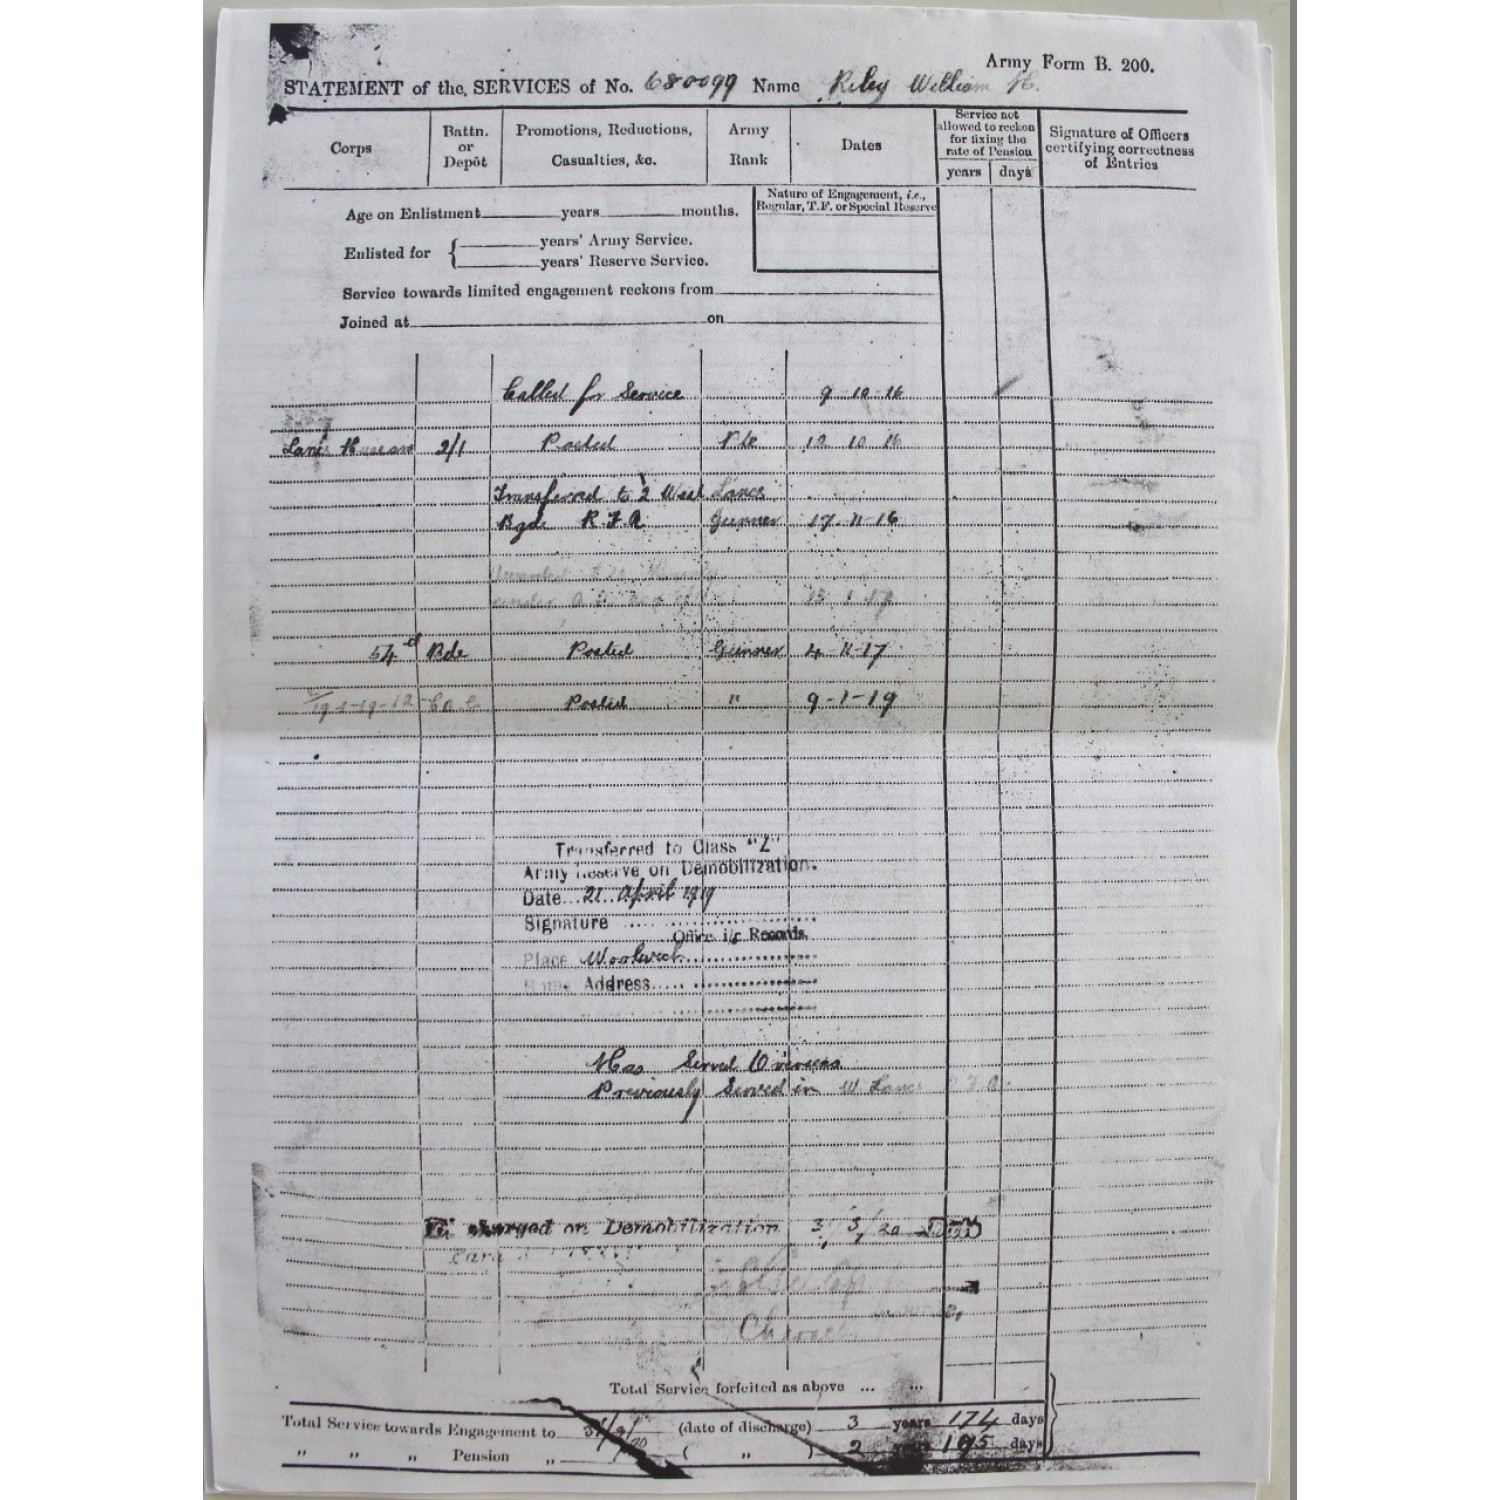 Army Form B. 200.
STATEMENT of the SERVICES of No. 680099 Name Riley William H.
Corps
Battn. or Depôt
Promotions, Reductions, Casualties, &c.
Army Rank
Dates
Service not allowed to reckon for fixing the rate of Pension
years days
Signature of Officers certifying correctness of Entries
Nature of Engagement, i.e., Regular, T.F. or Special Reserve
Age on Enlistment years months.
Enlisted for { years' Army Service.
years' Reserve Service.
Service towards limited engagement reckons from
Joined at on
Called for Service 9 10 16
2/1 Posted Pte 12 10 16
Transferred to 2 West Lancs
Bgde R.F.A. Gunner 17-11-16
under
54 Bde Posted Gunner 4-11-17
Posted " 9-1-19
Transferred to Class "Z"
Army Reserve on Demobilization.
Date 21 April 1919
Signature
Office i/c Records.
Place Woolwich
Address
Has Served Overseas
Previously Served in W Lancs R.F.A.
on Demobilization
Total Service forfeited as above ... ...
Total Service towards Engagement to (date of discharge) 3 years 174 days
" " " Pension " ( " ) 2 years 195 days